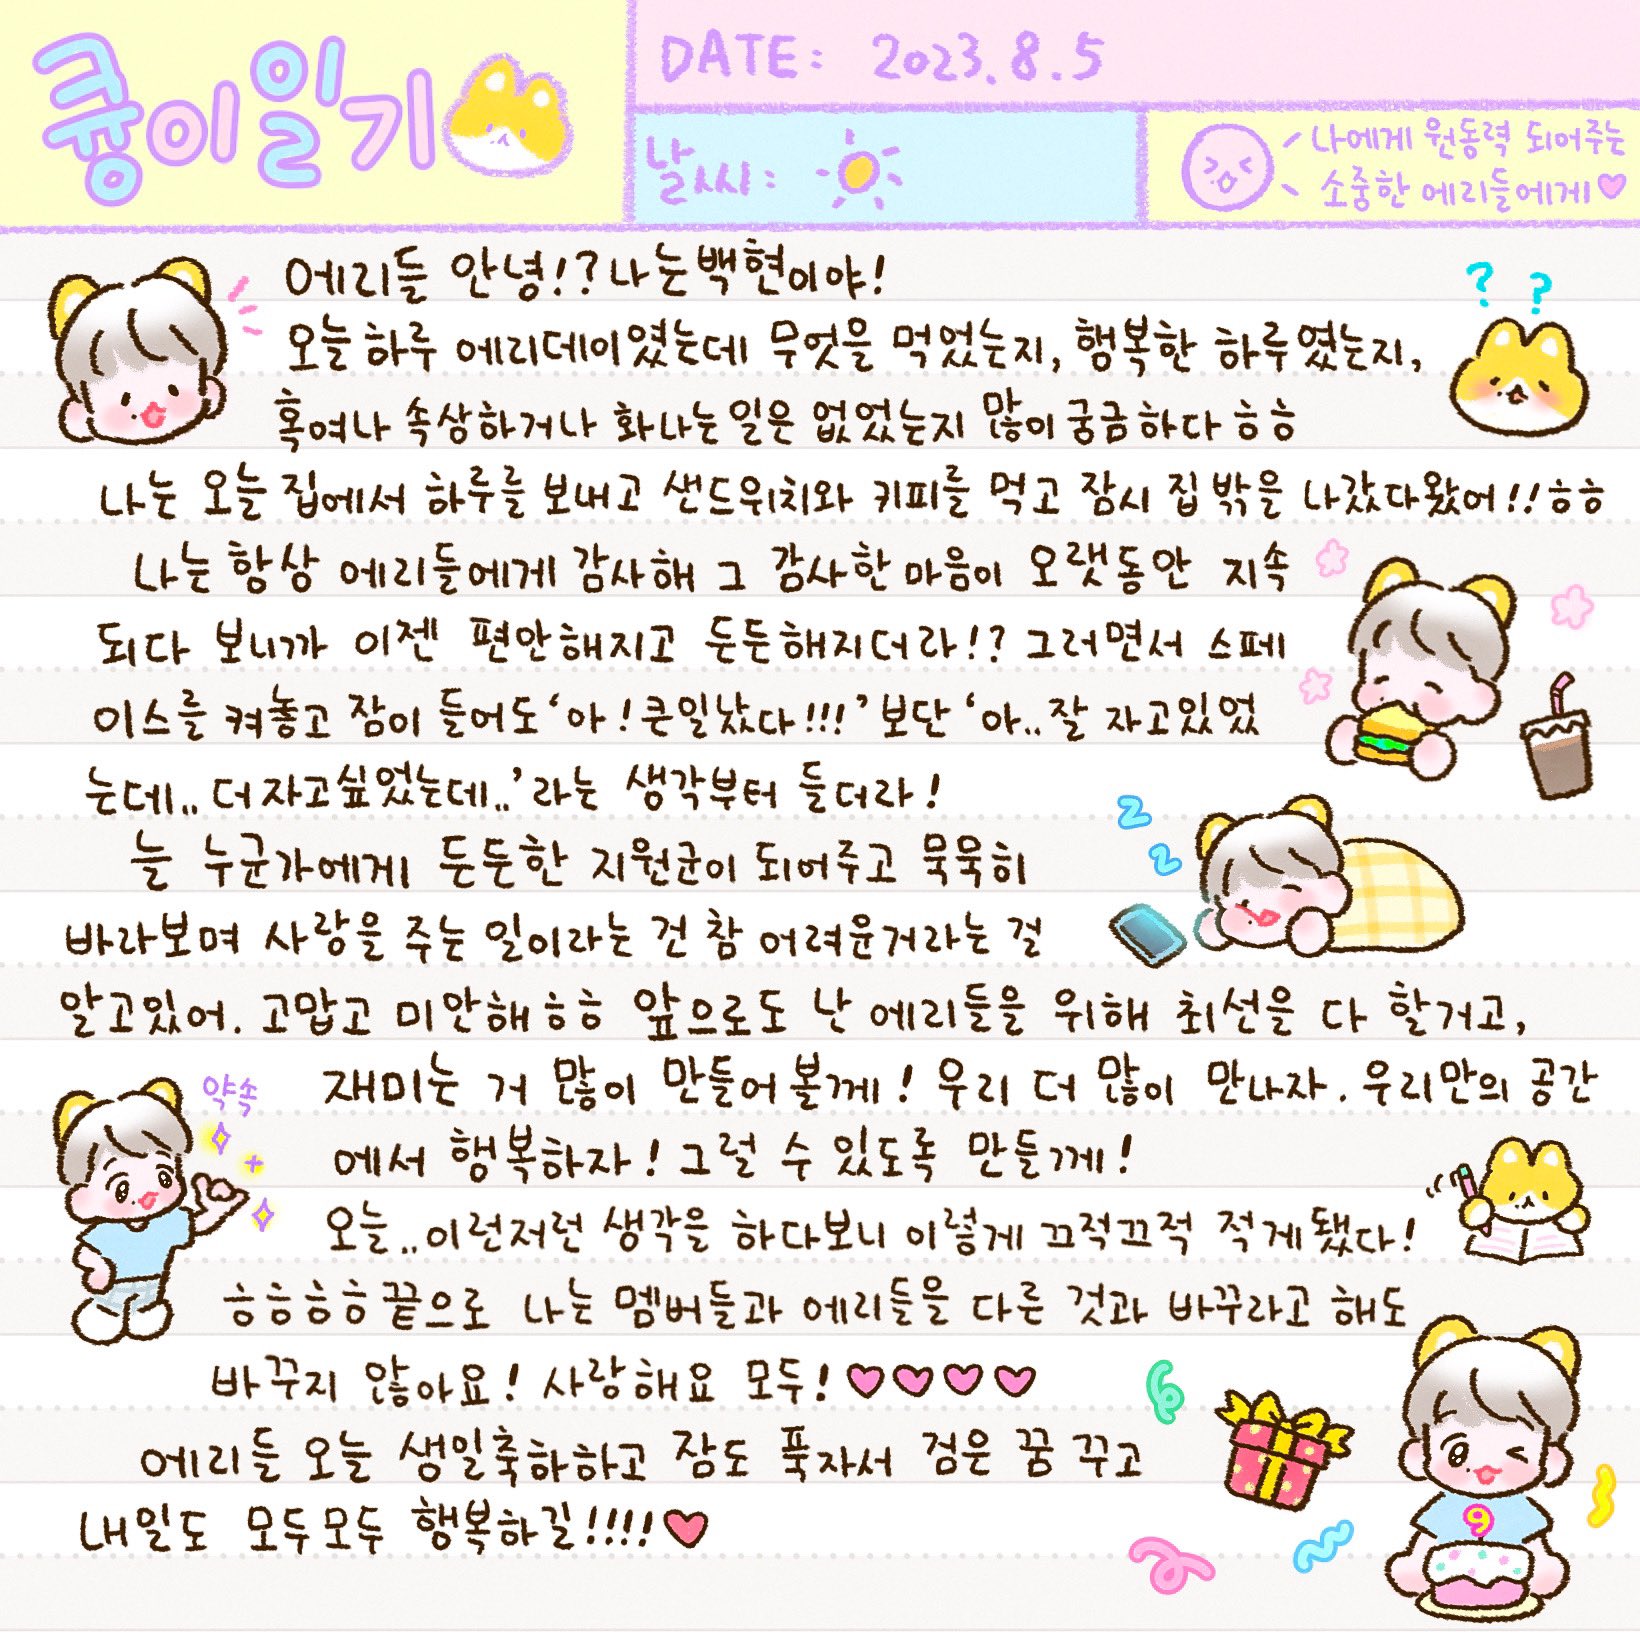 큥이일기
DATE: 2023.8.5
날씨:
나에게 원동력 되어주는
소중한 에리들에게♡
에리들 안녕!? 나는백현이야!
오늘하루 에리데이였는데 무엇을 먹었는지, 행복한 하루였는지,
혹여나 속상하거나 화나는일은 없었는지 많이궁금하다ㅎㅎ
나는 오늘 집에서 하루를 보내고 샌드위치와 커피를 먹고 잠시 집밖을 나갔다왔어!!ㅎㅎ
나는 항상 에리들에게 감사해 그 감사한 마음이 오랫동안 지속
되다 보니까 이젠 편안해지고 든든해지더라!? 그러면서 스페
이스를 켜놓고 잠이 들어도 ‘아! 큰일났다!!!’ 보단 ‘아.. 잘 자고있었
는데.. 더자고싶었는데..’라는 생각부터 들더라!
늘 누군가에게 든든한 지원군이 되어주고 묵묵히
바라보며 사랑을 주는 일이라는 건 참 어려운거라는 걸
알고있어. 고맙고 미안해ㅎㅎ 앞으로도 난 에리들을 위해 최선을 다 할거고,
재미는 거 많이 만들어볼께! 우리 더 많이 만나자. 우리만의 공간
에서 행복하자! 그럴 수 있도록 만들께!
약속
오늘.. 이런저런 생각을 하다보니 이렇게 끄적끄적 적게됐다!
ㅎㅎㅎㅎ끝으로 나는 멤버들과 에리들을 다른 것과 바꾸라고 해도
바꾸지 않아요! 사랑해요 모두!♡♡♡♡
에리들 오늘 생일축하하고 잠도 푹자서 검은 꿈 꾸고
내일도 모두모두 행복하길!!!!♡
? ?
z
z
9